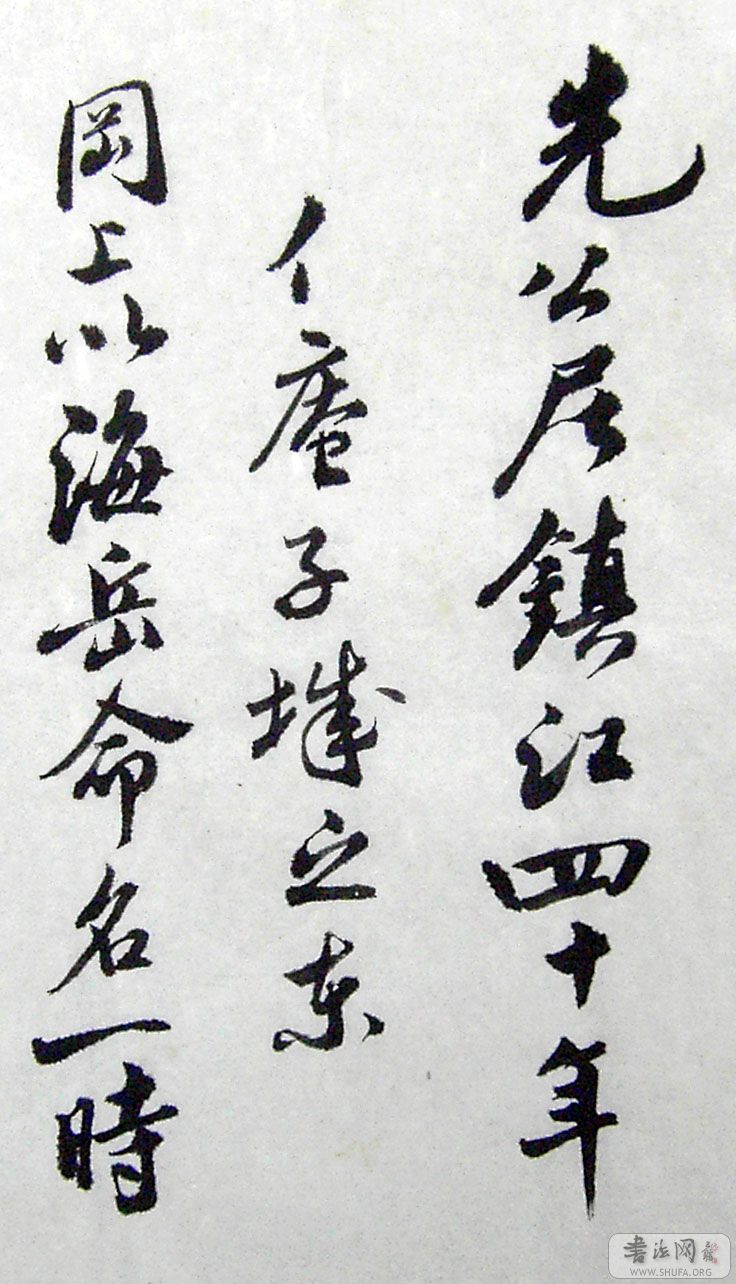 先公居鎮江四十年
作庵于城之東
岡上以海岳命名一時
書法网
WWW.SHUFA.ORG